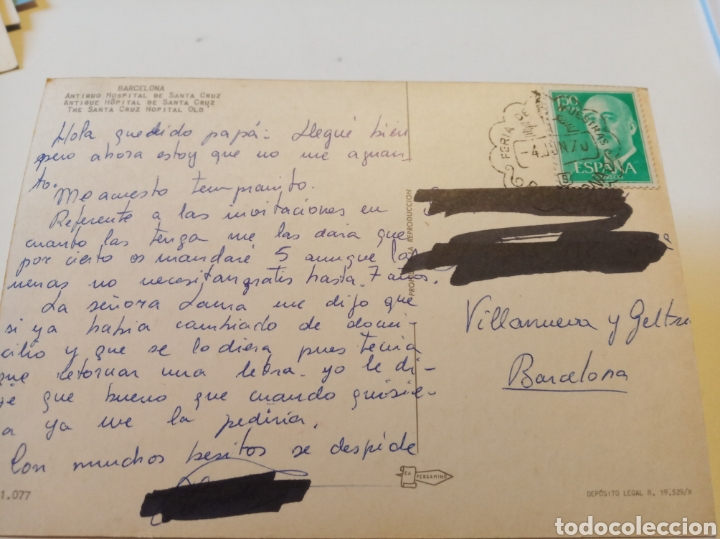 BARCELONA
ANTIGUO HOSPITAL DE SANTA CRUZ
ANTIQUE HÔPITAL DE SANTA CRUZ
THE SANTA CRUZ HOPITAL OLD
Hola querido papá: Llegué bien
pero ahora estoy que no me aguan-
to.
Me acuesto tempranito.
Referente a las invitaciones en
cuanto las tenga me las dara que
por cierto os mandaré 5 aunque las
nenas no necesitan gratis hasta 7 años.
La señora Laura me dijo que
si ya habia cambiado de domi-
cilio y que se lo diera pues tenia
que retornar una letra. yo le di-
je que bueno que cuando quisie-
a ya me la pediria.
Con muchos besitos se despide
1.077
PROHIBIDA REPRODUCCION
PERGAMINO
FERIA DE MUESTRAS
4 JUN 70
ESPAÑA
Villanueva y Geltru
Barcelona
DEPÓSITO LEGAL B. 19.529/X
todocoleccion